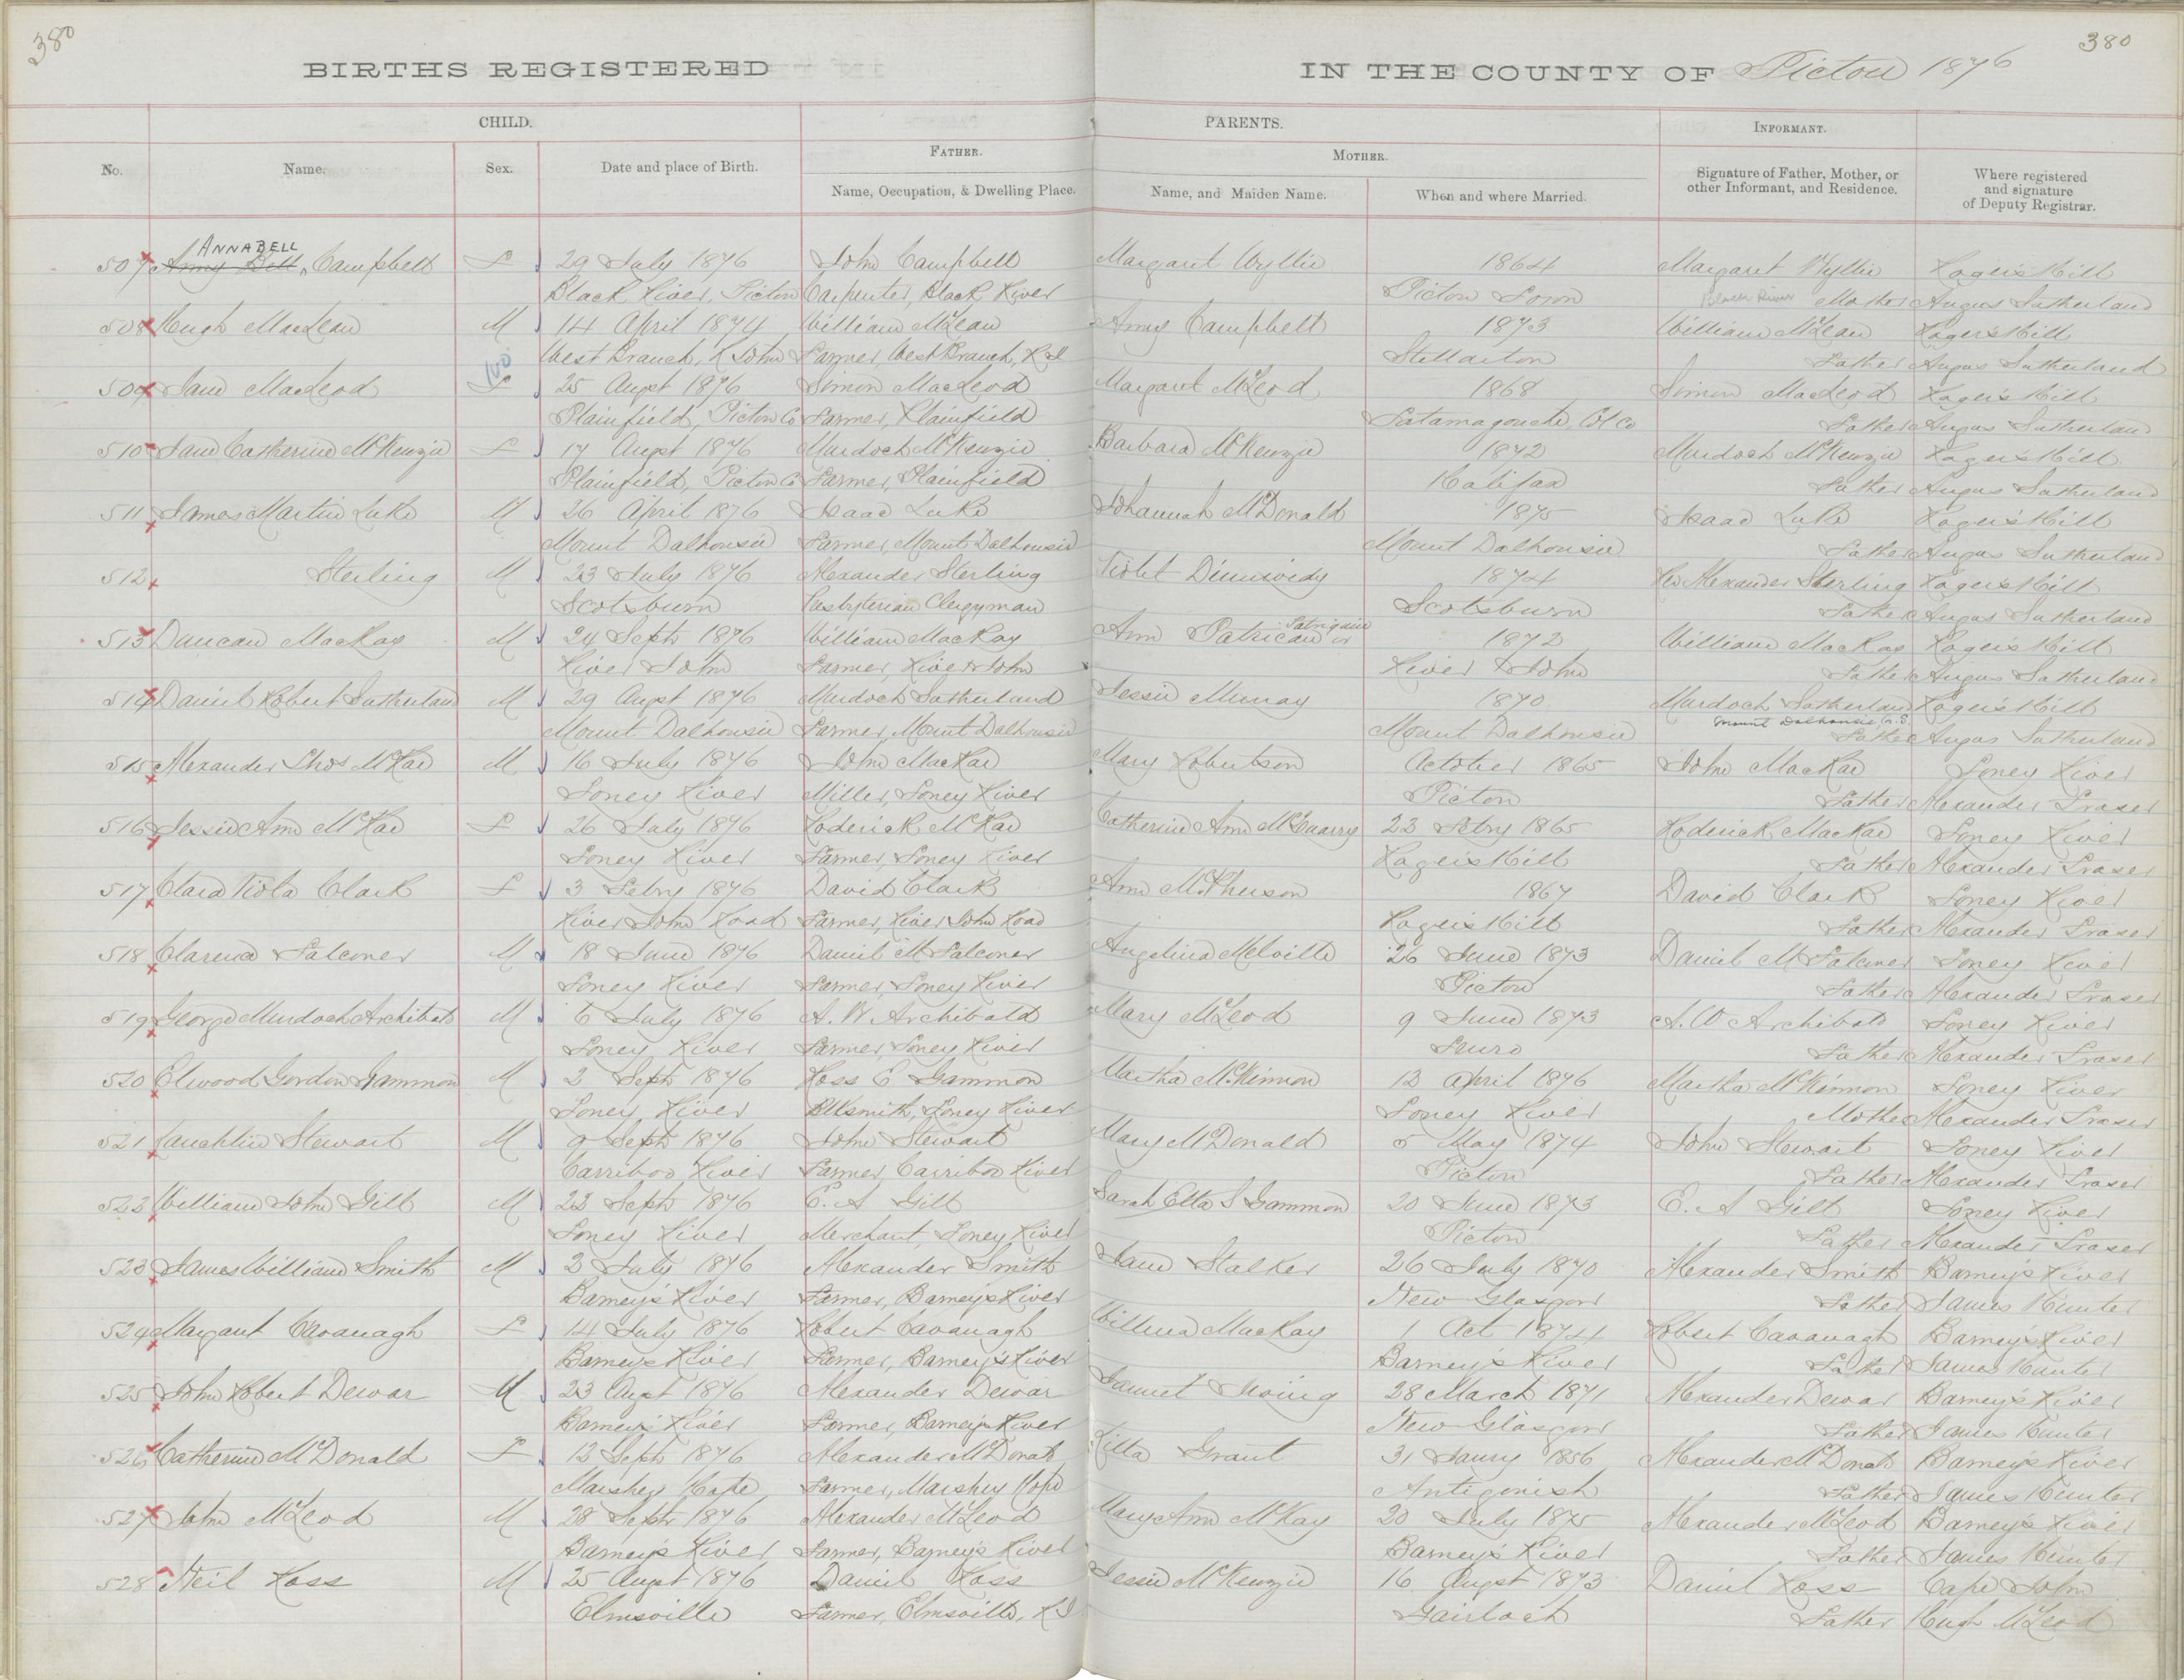 380
380
BIRTHS REGISTERED IN THE COUNTY OF Pictou 1876
CHILD. PARENTS. INFORMANT.
No. Name. Sex. Date and place of Birth. FATHER. Name, Occupation, & Dwelling Place. MOTHER. Name, and Maiden Name. When and where Married. Signature of Father, Mother, or other Informant, and Residence. Where registered and signature of Deputy Registrar.
ANNABELL
507 Amy Bell Campbell F 29 July 1876 John Campbell Margaret Wyllie 1864 Margaret Wyllie Roger's Hill
Black River, Pictou Carpenter, Black River Pictou Town Black River Mother Angus Sutherland
508 Hugh MacLean M 14 April 1874 William McLean Amy Campbell 1873 William McLean Roger's Hill
West Branch, R John Farmer, West Branch, R J Stellarton Father Angus Sutherland
100
509 Jane MacLeod F 25 Augst 1876 Simon MacLeod Margaret McLeod 1868 Simon MacLeod Roger's Hill
Plainfield, Pictou Co Farmer, Plainfield Tatamagouche, Col Co Father Angus Sutherland
510 Jane Catherine McKenzie F 17 Augst 1876 Murdoch McKenzie Barbara McKenzie 1872 Murdoch McKenzie Roger's Hill
Plainfield, Pictou Co Farmer, Plainfield Halifax Father Angus Sutherland
511 James Martin Luke M 26 April 1876 Isaac Luke Johannah McDonald 1875 Isaac Luke Roger's Hill
Mount Dalhousie Farmer, Mount Dalhousie Mount Dalhousie Father Angus Sutherland
512 Sterling M 23 July 1876 Alexander Sterling Violet Dinwoidy 1874 Rev Alexander Sterling Roger's Hill
Scotsburn Presbyterian Clergyman Scotsburn Father Angus Sutherland
513 Duncan MacKay M 24 Septr 1876 William MacKay Ann Patrican or Patriquin 1872 William MacKay Roger's Hill
River John Farmer, River John River John Father Angus Sutherland
514 Daniel Robert Sutherland M 29 Augst 1876 Murdoch Sutherland Jessie Murray 1870 Murdoch Sutherland Roger's Hill
Mount Dalhousie Farmer, Mount Dalhousie Mount Dalhousie Mount Dalhousie, N.S. Father Angus Sutherland
515 Alexander Thos McRae M 16 July 1876 John MacRae Mary Robertson October 1865 John MacRae Toney River
Toney River Miller, Toney River Pictou Father Alexander Fraser
516 Jessie Ann McRae F 26 July 1876 Roderick McRae Catherine Ann McQuarry 23 Febry 1865 Roderick MacRae Toney River
Toney River Farmer, Toney River Roger's Hill Father Alexander Fraser
517 Clara Viola Clark F 3 Febry 1876 David Clark Ann McPherson 1867 David Clark Toney River
River John Road Farmer, River John Road Roger's Hill Father Alexander Fraser
518 Clarence Falconer M 18 June 1876 Daniel M Falconer Angelina Melville 26 June 1873 Daniel M Falconer Toney River
Toney River Farmer, Toney River Pictou Father Alexander Fraser
519 George Murdoch Archibald M 6 July 1876 A. W Archibald Mary McLeod 9 June 1873 A. W Archibald Toney River
Toney River Farmer, Toney River Truro Father Alexander Fraser
520 Elwood Gordon Gammon M 2 Septr 1876 Ross E Gammon Martha McKinnon 12 April 1876 Martha McKinnon Toney River
Toney River Blksmith, Toney River Toney River Mother Alexander Fraser
521 Lauchlin Stewart M 9 Septr 1876 John Stewart Mary McDonald 5 May 1874 John Stewart Toney River
Carriboo River Farmer, Carriboo River Pictou Father Alexander Fraser
522 William John Gill M 22 Septr 1876 E. A Gill Sarah Etta S Gammon 20 June 1873 E. A Gill Toney River
Toney River Merchant, Toney River Pictou Father Alexander Fraser
523 James William Smith M 2 July 1876 Alexander Smith Jane Stalker 26 July 1870 Alexander Smith Barney's River
Barney's River Farmer, Barney's River New Glasgow Father James Hunter
524 Margaret Cavanagh F 14 July 1876 Robert Cavanagh Willena MacKay 1 Oct 1874 Robert Cavanagh Barney's River
Barney's River Farmer, Barney's River Barney's River Father James Hunter
525 John Robert Dewar M 23 Augt 1876 Alexander Dewar Jannet Irving 28 March 1871 Alexander Dewar Barney's River
Barney's River Farmer, Barney's River New Glasgow Father James Hunter
526 Catherine McDonald F 12 Septr 1876 Alexander McDonald Grant 31 Janry 1856 Alexander McDonald Barney's River
Marshey Hope Farmer, Marshey Hope Antigonish Father James Hunter
527 John McLeod M 28 Septr 1876 Alexander McLeod Mary Ann McKay 20 July 1875 Alexander McLeod Barney's River
Barney's River Farmer, Barney's River Barney's River Father James Hunter
528 Neil Ross M 25 Augst 1876 Daniel Ross Jessie McKenzie 16 Augst 1873 Daniel Ross Cape John
Elmsville Farmer, Elmsville, R J Gairloch Father Hugh McLeod